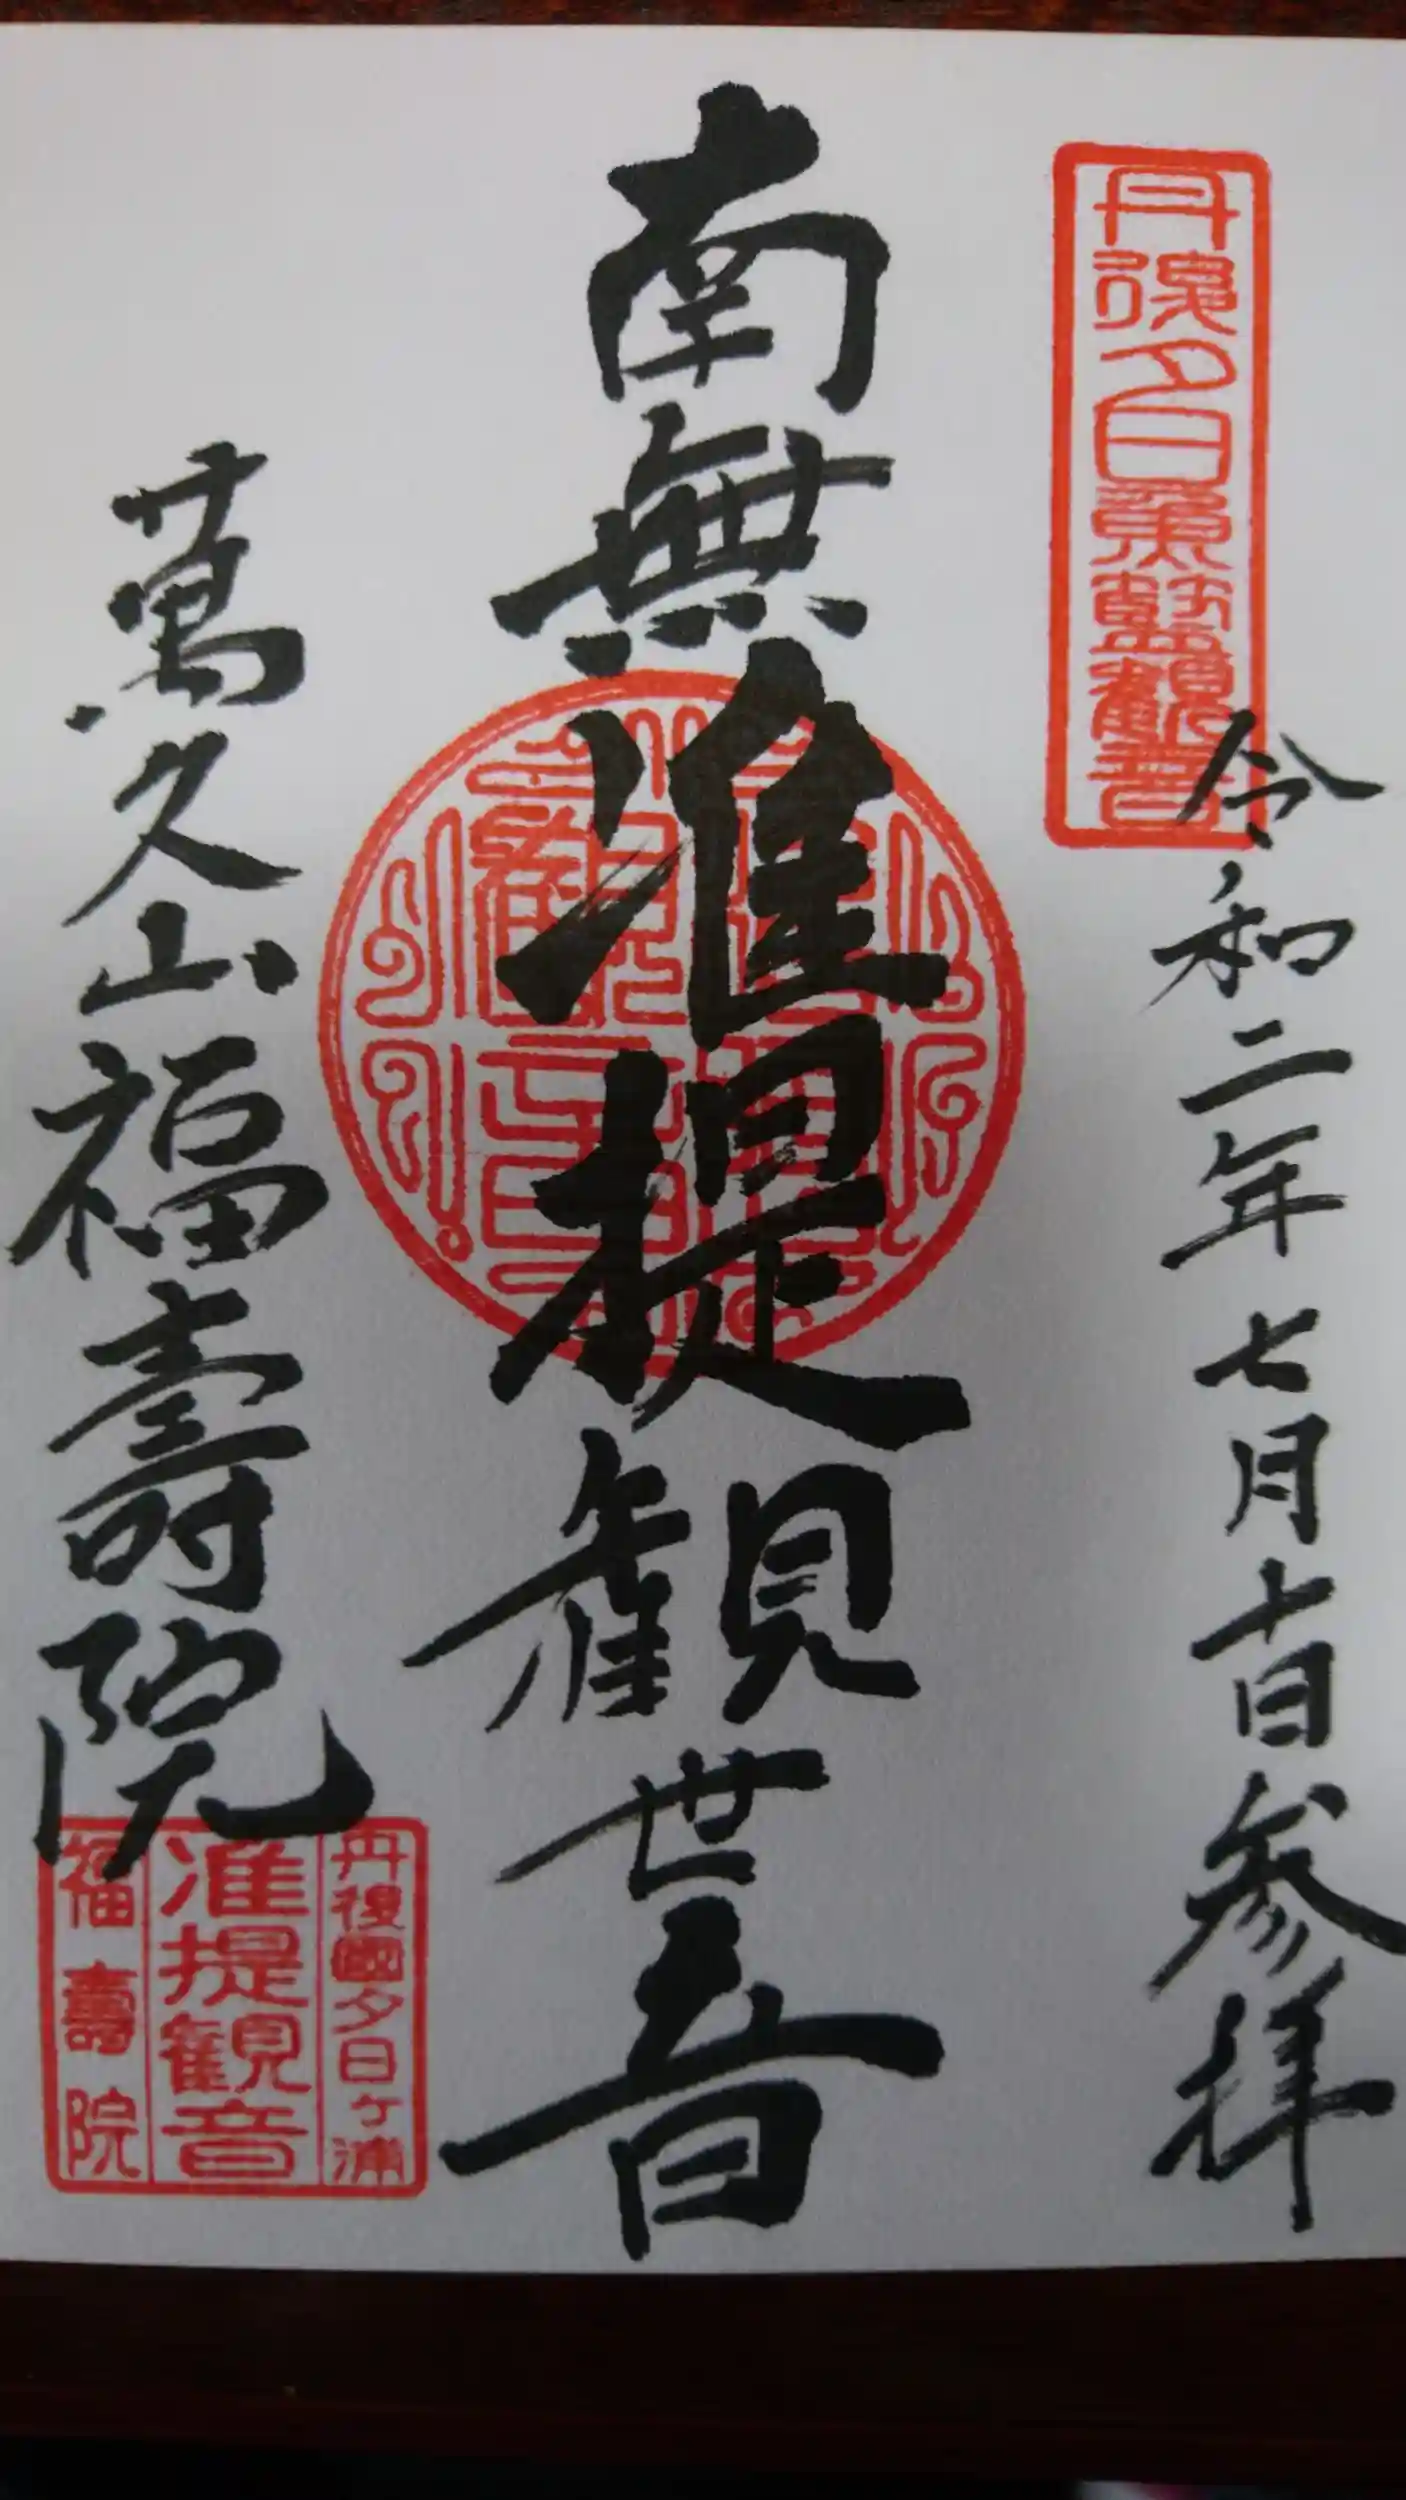 丹後夕日魚籃観音
令和二年七月十日参拝
南無准提観世音
萬久山福壽院
丹後國夕日ヶ浦
准提観音
福壽院